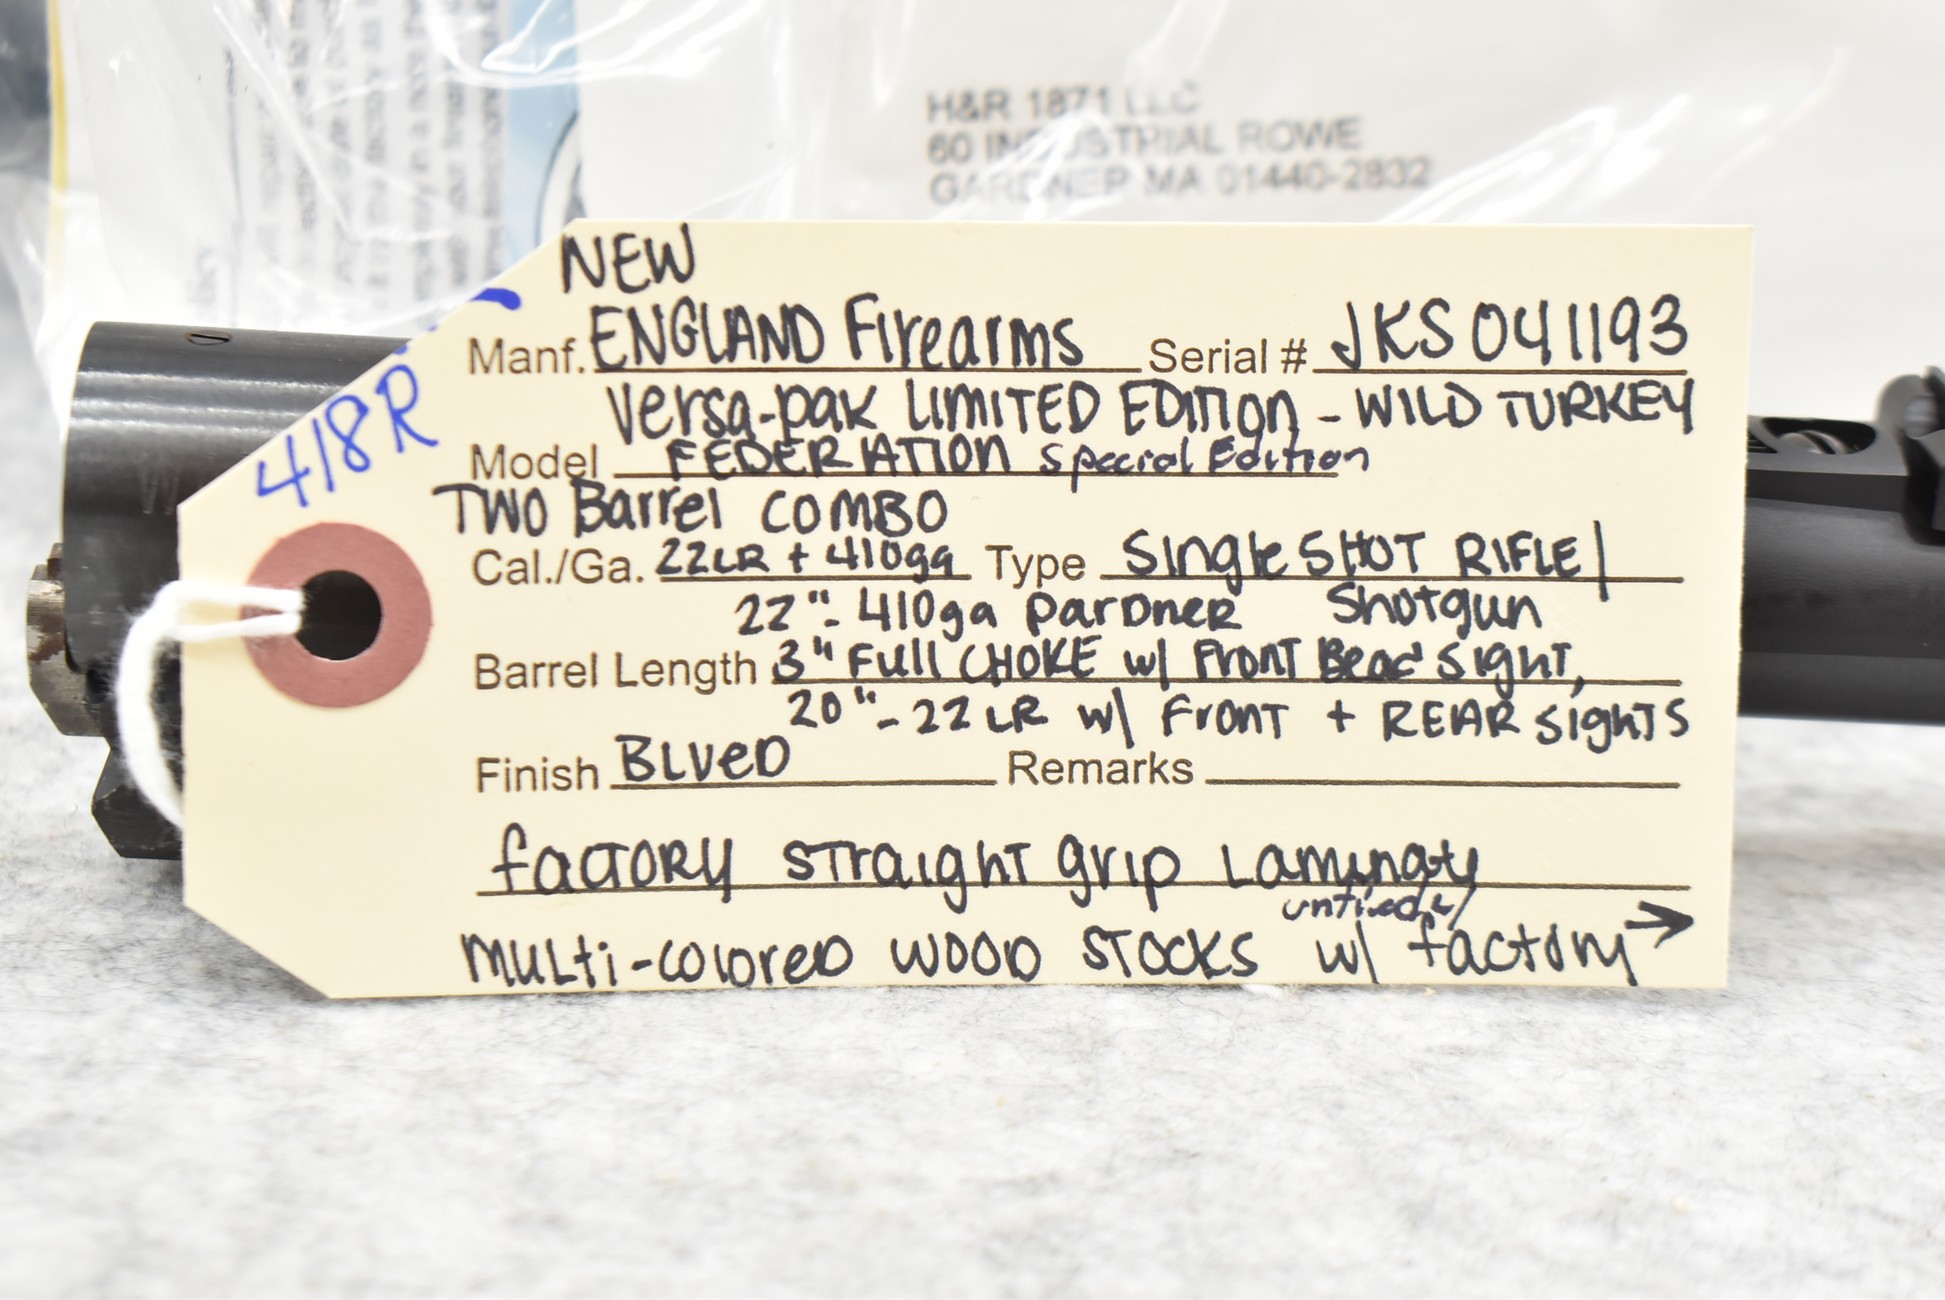 H&R 1871 LLC
60 INDUSTRIAL ROWE
GARDNER MA 01440-2832
NEW
Manf. ENGLAND Firearms Serial # JKS041193
Versa-pak LIMITED EDITION - WILD TURKEY
Model FEDERATION Special Edition
TWO Barrel COMBO
Cal./Ga. 22LR + 410ga Type Single SHOT RIFLE/
22"- 410ga Pardner Shotgun
Barrel Length 3" Full CHOKE w/ Front Bead Sight,
20"-22LR w/ Front + REAR Sights
Finish BLUED Remarks
factory straight grip Laminaty
unfired w/
multi-colored wood stocks w/ factory →
418R